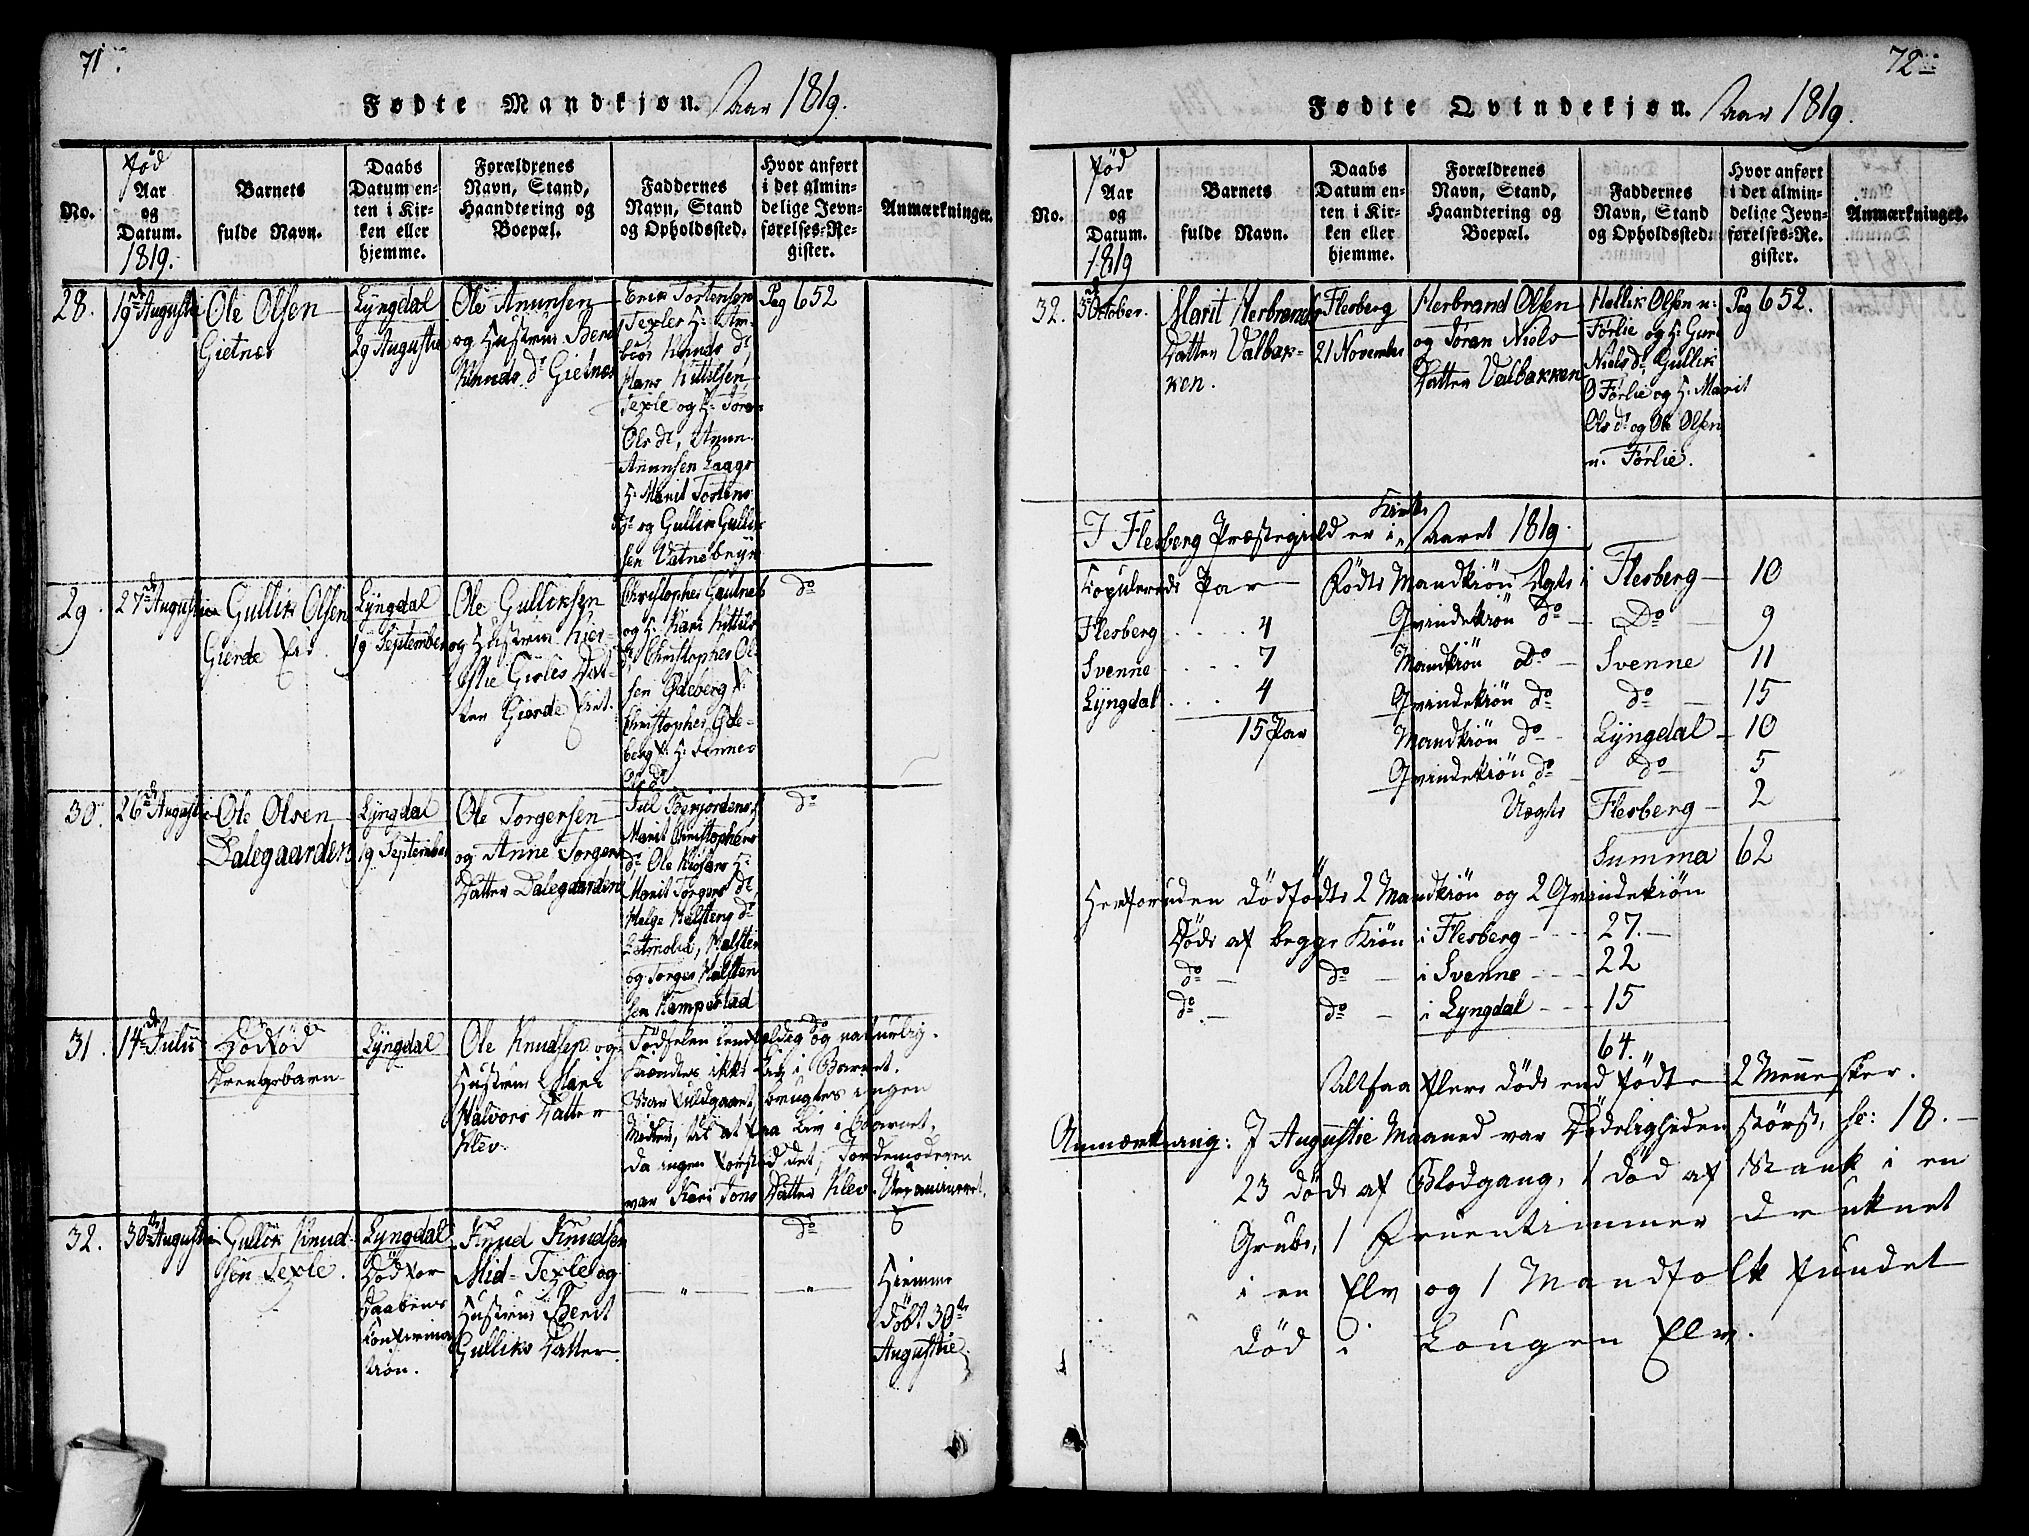 71.
Fødte Mandkjøn. Aar 1819.
No.
Fød
Aar
og
Datum.
1819.
Barnets
fulde Navn.
Daabs
Datum en-
ten i Kir-
ken eller
hjemme.
Forældrenes
Navn, Stand,
Haandtering og
Boepæl.
Faddernes
Navn, Stand
og Opholdssted.
Hvor anført
i det almin-
delige Jevn-
førelses-Re-
gister.
Anmærkninger.
28.
19de Augustii
Ole Olsen
Gietnes
Lyngdal
29 Augustie
Ole Anunsen
og Hustrue Berit
Knuds Dr Gietnes
Erik Tostensen
Texler H:
Knuds Dr,
Hans Kittilsen
Texle og H: Tøran
Ols Dr, Anun
Anunsen Laags
H: Marit Tostens
Dr og Gullik Gullik
sen Vatnebryn
Pag 652
29.
27de Augustii
Gullik Olsen
Gierde Eiet
Lyngdal
19 September
Ole Gulliksen
og Hustrue Kier-
stie Girles Dat-
ter Gierde Eiet.
Christopher Gautnes
og H: Kari Kittils
Dr Christopher Ol-
sen Ødeberg
Christopher Øde-
berg H: Sønnes
Ols Dr
Do
30.
26de Augustii
Ole Olsen
Dalegaarden
Lyngdal
19 September
Ole Torgersen
og Anne Torgers
Datter Dalegaarden
Jul Bergordens
Marit Christophers
Dr Ole
Marit Torgers Dr,
Helge Halsteng Dr
Halsten
og Torger Halsten
sen Kampestad
Do
31.
14de Julii
Dødfød
Drengebarn
Lyngdal
Ole Knudsen og
Hustrue Kari
Halvors Datter
Klev.
Fødselen lendefældig og naturlig.
Kiendtes ikke Liv i Barnet.
Var Fuldgaaet, brugtes ingen
Midler, til at faa Liv i Barnet,
da ingen forstod det; Jordemoderen
var Kari Jons Datter Klev. Uexamineret.
32.
30de Augustii
Gullik Knud-
sen Texle.
Lyngdal
Død før
Daabens
Confirma-
tion.
Knud Knudsen
Mid-Texle og
Hustrue Berit
Gulliks Datter.
— " —
Do
— " —
Hiemme
døbt 30te
Augustie.
72
Fødte Qvindekjøn. Aar 1819.
No.
Fød
Aar
og
Datum.
1819
Barnets
fulde Navn.
Daabs
Datum en-
ten i Kir-
ken eller
hjemme.
Forældrenes
Navn, Stand,
Haandtering og
Boepæl.
Faddernes
Navn, Stand
og Opholdssted.
Hvor anført
i det almin-
delige Jevn-
førelses-Re-
gister.
Anmærkninger.
32.
October.
Marit Herbrands
Datter Valbak-
ken.
Flesberg
21 November
Herbrand Olsen
og Tøran Niels
Datter Valbakken
Hellik Olsen n:
Førlie og H: Guri
Niels Dr Gullik
O Førlie og H. Marit
Ols Dr og Ole Olsen
n. Førlie.
Pag 652.
I Flesberg Præstegield er i Kirke Aaret 1819.
Kopulerede Par
Flesberg .... 4
Svenne .... 7
Lyngdal .... 4
15 Par
Fødte Mandkiøn Ægte i Flesberg — 10
Qvindekiøn Do — Do — 9
Mandkiøn Do — Svenne 11
Qvindekiøn Do do — 15
Mandkiøn Do — Lyngdal — 10
Qvindekiøn Do — do 5
Uægte Flesberg — 2
Summa 62
Herforuden Dødfødte 2 Mandkiøn og 2 Qvindekiøn
Døde af begge Kiøn i Flesberg - - - 27. —
do — do — i Svenne - - - 22
do — do — i Lyngdal - - - 15
64.
Altsaa flere døde end fødte 2 Mennesker.
Anmærkning: I Augustie Maaned var Dødeligheden størst, se: 18. —
23 døde af Blodgang, 1 død af Stank i en
Grube, 1 Fruentimmer druknet
i en Elv og 1 Mandfolk fundet
død i Lougen Elv.